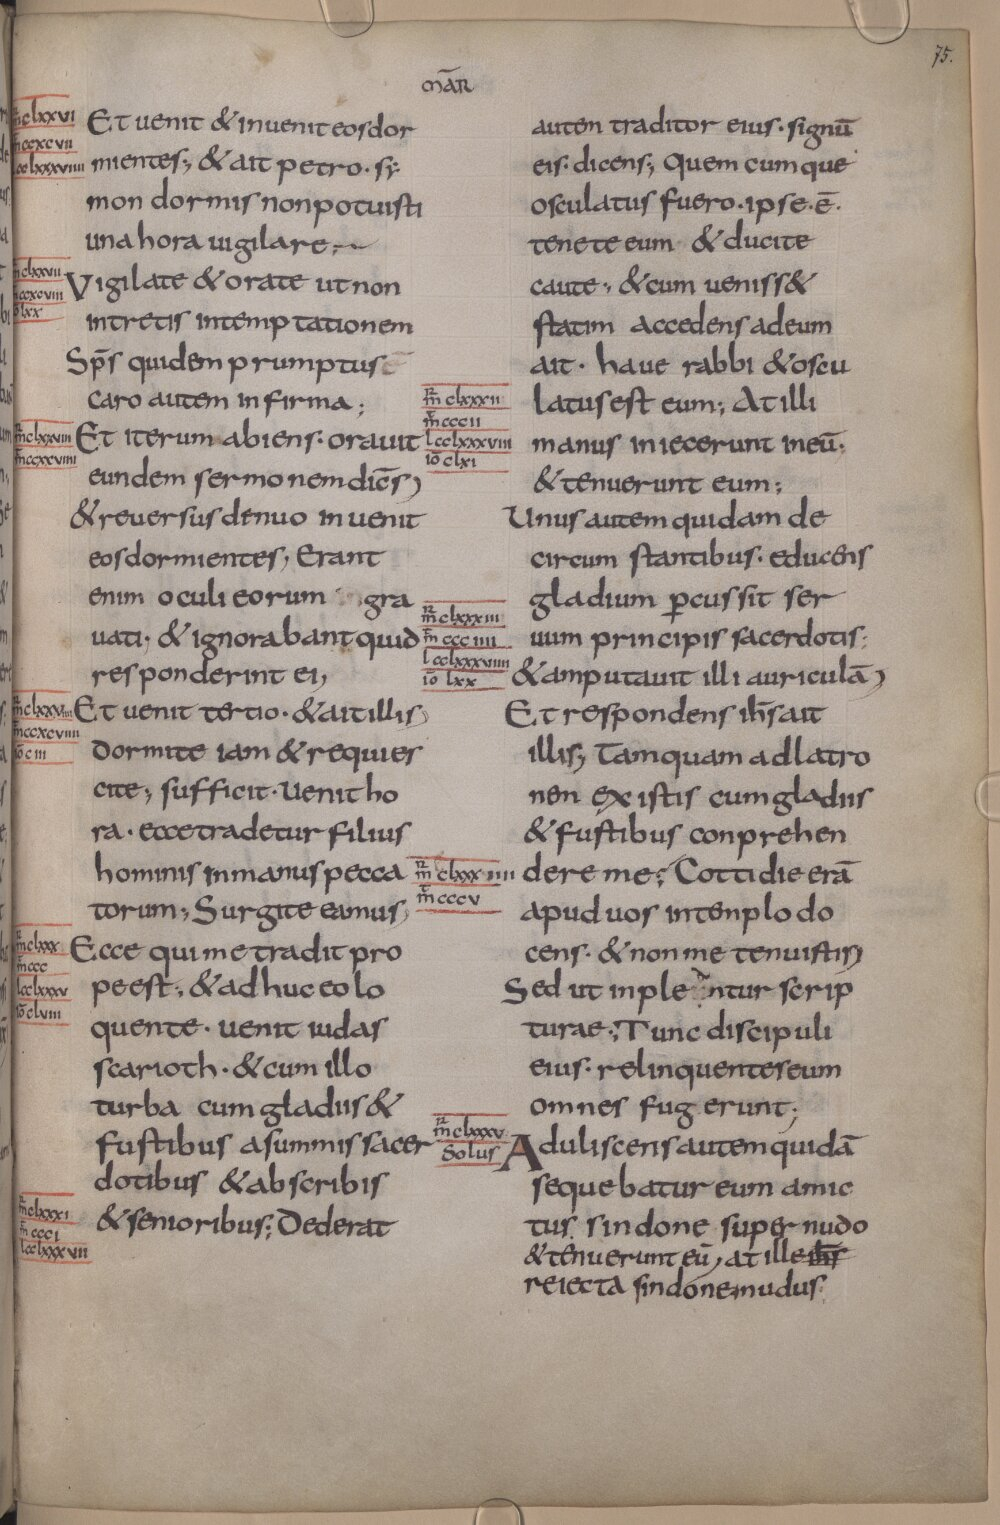 75.
mār
m̄ clxxvi
m̄ ccxcvii
lcclxxxviiii
Et uenit & inuenit eosdor
mientes; & ait petro · sy
mon dormis non potuisti
una hora uigilare;
m̄ clxxvii
m̄ ccxcviii
iō lxx
Vigilate & orate ut non
intretis in temptationem
Sp̄s quidem prumptus
caro autem infirma;
m̄ clxxviii
m̄ ccxcviiii
Et iterum abiens · orauit
eundem sermonem dicēs,
& reuersus denuo inuenit
eos dormientes, Erant
enim oculi eorum gra
uati, & ignorabant quid
responderint ei,
m̄ clxxviiii
m̄ ccxcviiii
iō ciii
Et uenit tertio · & ait illis,
dormite iam & requies
cite, sufficit · uenit ho
ra · ecce tradetur filius
hominis in manus pecca
torum; Surgite eamus,
m̄ clxxx
m̄ ccc
lcclxxxv
iō clviii
Ecce qui me tradit pro
pe est; & adhuc eo lo
quente · uenit iudas
scarioth · & cum illo
turba cum gladiis &
fustibus a summis sacer
dotibus & ab scribis
m̄ clxxxi
m̄ ccci
lcclxxxvii
& senioribus; Dederat
autem traditor eius · signū
eis · dicens; Quem cumque
osculatus fuero · ipse · ē ·
tenete eum & ducite
caute; & cumueniss&
statim accedens ad eum
ait · haue rabbi & oscu
m̄ clxxxii
m̄ cccii
lcclxxxviii
iō clxi
latus est eum; At illi
manus iniecerunt in eū;
& tenuerunt eum;
Unus autem quidam de
circum stantibus · educens
gladium ꝑcussit ser
m̄ clxxxiii
m̄ ccciiii
lcclxxxviiii
iō lxx
uum principis sacerdotis;
& amputauit illi auriculā,
Et respondens ih̄s ait
illis; Tamquam ad latro
nen existis cum gladiis
& fustibus conprehen
m̄ clxxxiiii
m̄ cccv
dere me; Cottidie erā
apud uos in templo do
cens · & non me tenuistis,
Sed ut inplentur scrip
turae; Tunc discipuli
eius · relinquentes eum
omnes fugerunt;
m̄ clxxxv
Solus
Aduliscens autem quidā
sequebatur eum amic
tus sindone super nudo
& tenuerunt eū, at ille ih̄s
reiecta sindone, nudus